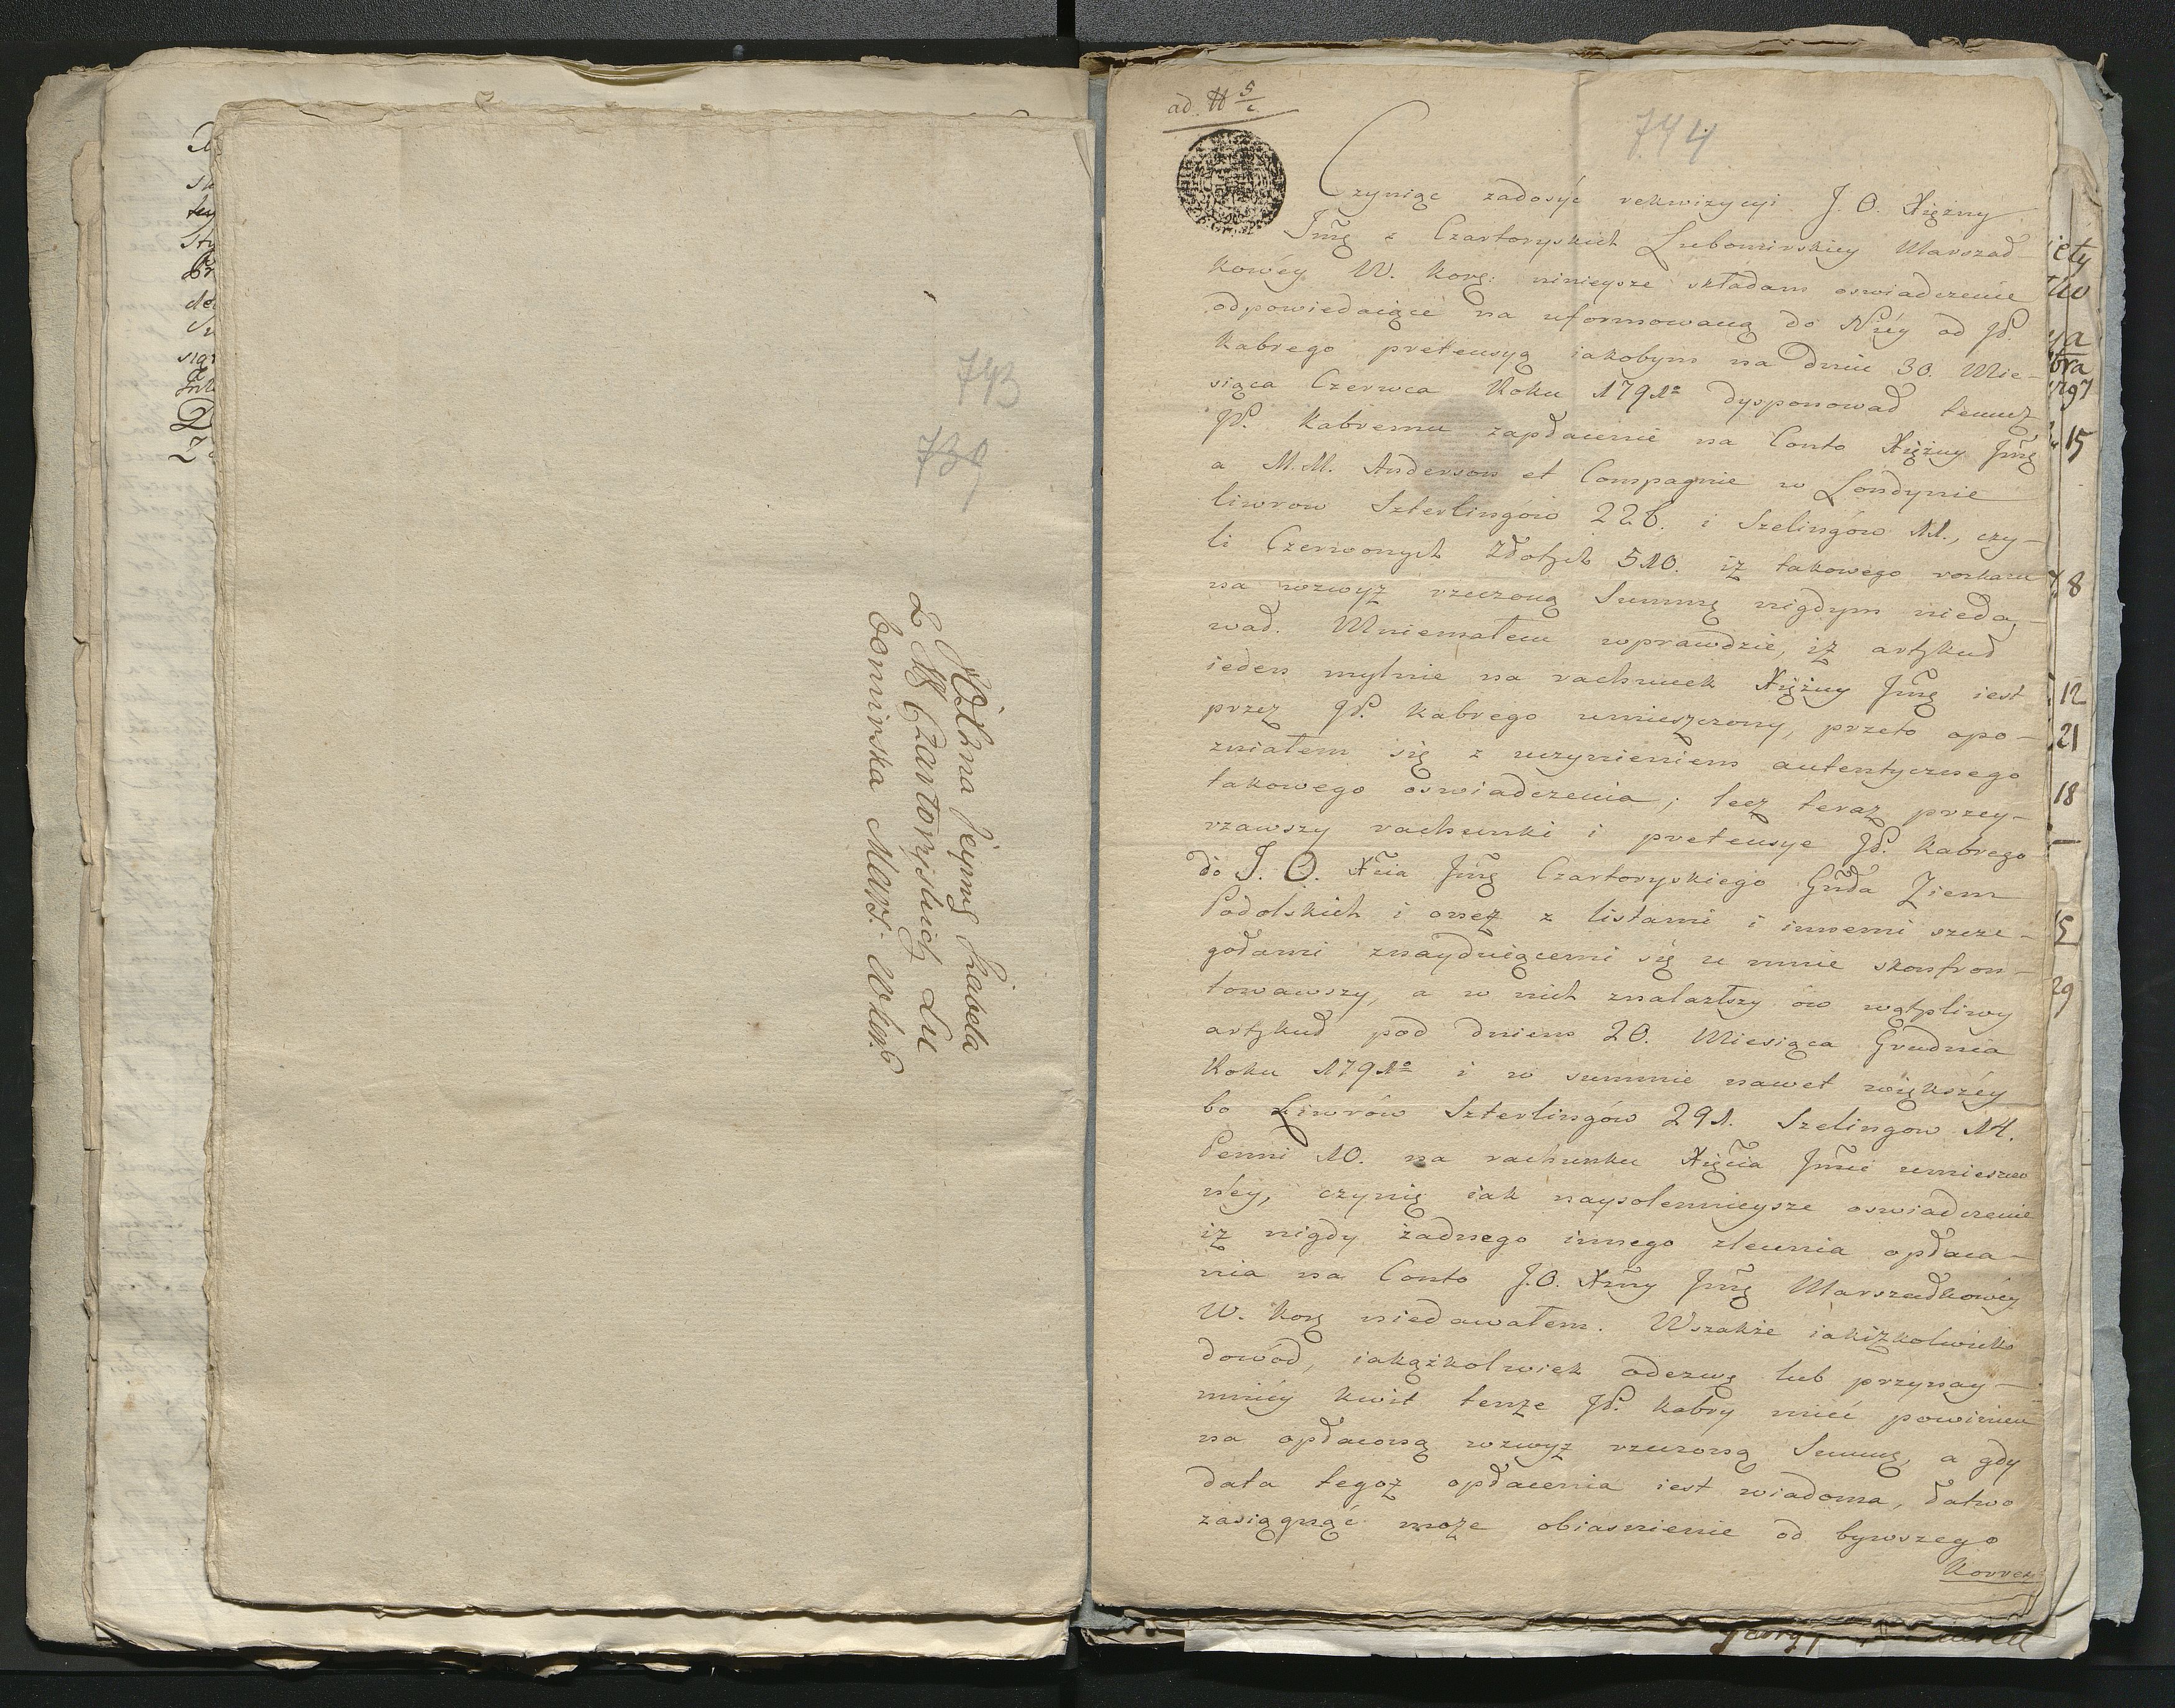 743
739
Xżna Jeymę Izabela
Z XX Czartoryskich Lu
bomirska Mars: W: kor:
ad. ℔ 5/c
744
Czyniąc zadosyć rekwizycyi J. O. Xiężny
Jmę z Czartoryskich Lubomirskiey Marszał-
kowéy W. Korę: ninieysze składam oswiadczenie
odpowiedaiące na uformowaną do Niéy od JP.
Kabrego pretensyą iakobym na dniu 30. Mie-
siąca Czerwca Roku 1791º dysponował temuż
JP. Kabremu zapłacenie na Conto Xiężny Jmę
a M.M. Anderson et Compagnie w Londynie
liwrow Szterlingów 226. i Szelingów 11., czy-
li Czerwonych Złotych 510. iż takowego roskazu
na wzwyż rzeczoną Summę nigdym nieda-
wał. Mniemałem wprawdzie, iż artykuł
ieden mylnie na rachunek Xiężny Jmę iest
przez JP. Kabrego umieszczony, przeto opo-
zniałem się z uczynieniem autentycznego
takowego oswiadczenia; lecz teraz przey-
rzawszy rachunki i pretensye JP. Kabrego
do J. O. Xcia Jmę Czartoryskiego Gnła Ziem
Podolskich i onez z listami i innemi szcze-
gółami znayduiącemi się u mnie skonfron-
towawszy, a w nich znalazłszy ów wątpliwy
artykuł pod dniem 20. Miesiąca Grudnia
Roku 1791º i w summie nawet większéy
bo Liwrów Szterlingów 291. Szelingow 14.
Penni 10. na rachunku Xięcia Jmci umieszczo
néy, czynię iak naysolennieysze oswiadczenie
iż nigdy żadnego innego zlecenia opłaca-
nia na Conto J.O. Xżny Jmę Marszałkowéy
W. Korę niedawałem. Wszakże iakiżkolwiek
dowód, iakążkolwiek odezwę lub przynay-
mniéy kwit tenże JP. Kabry mieć powinien
na opłaconą wzwyż rzeczoną Summę, a gdy
data tegoż opłacenia iest wiadoma, łatwo
zasiągnąć może obiasnienie od bywszego
Korres
15
8
12
21
18
29